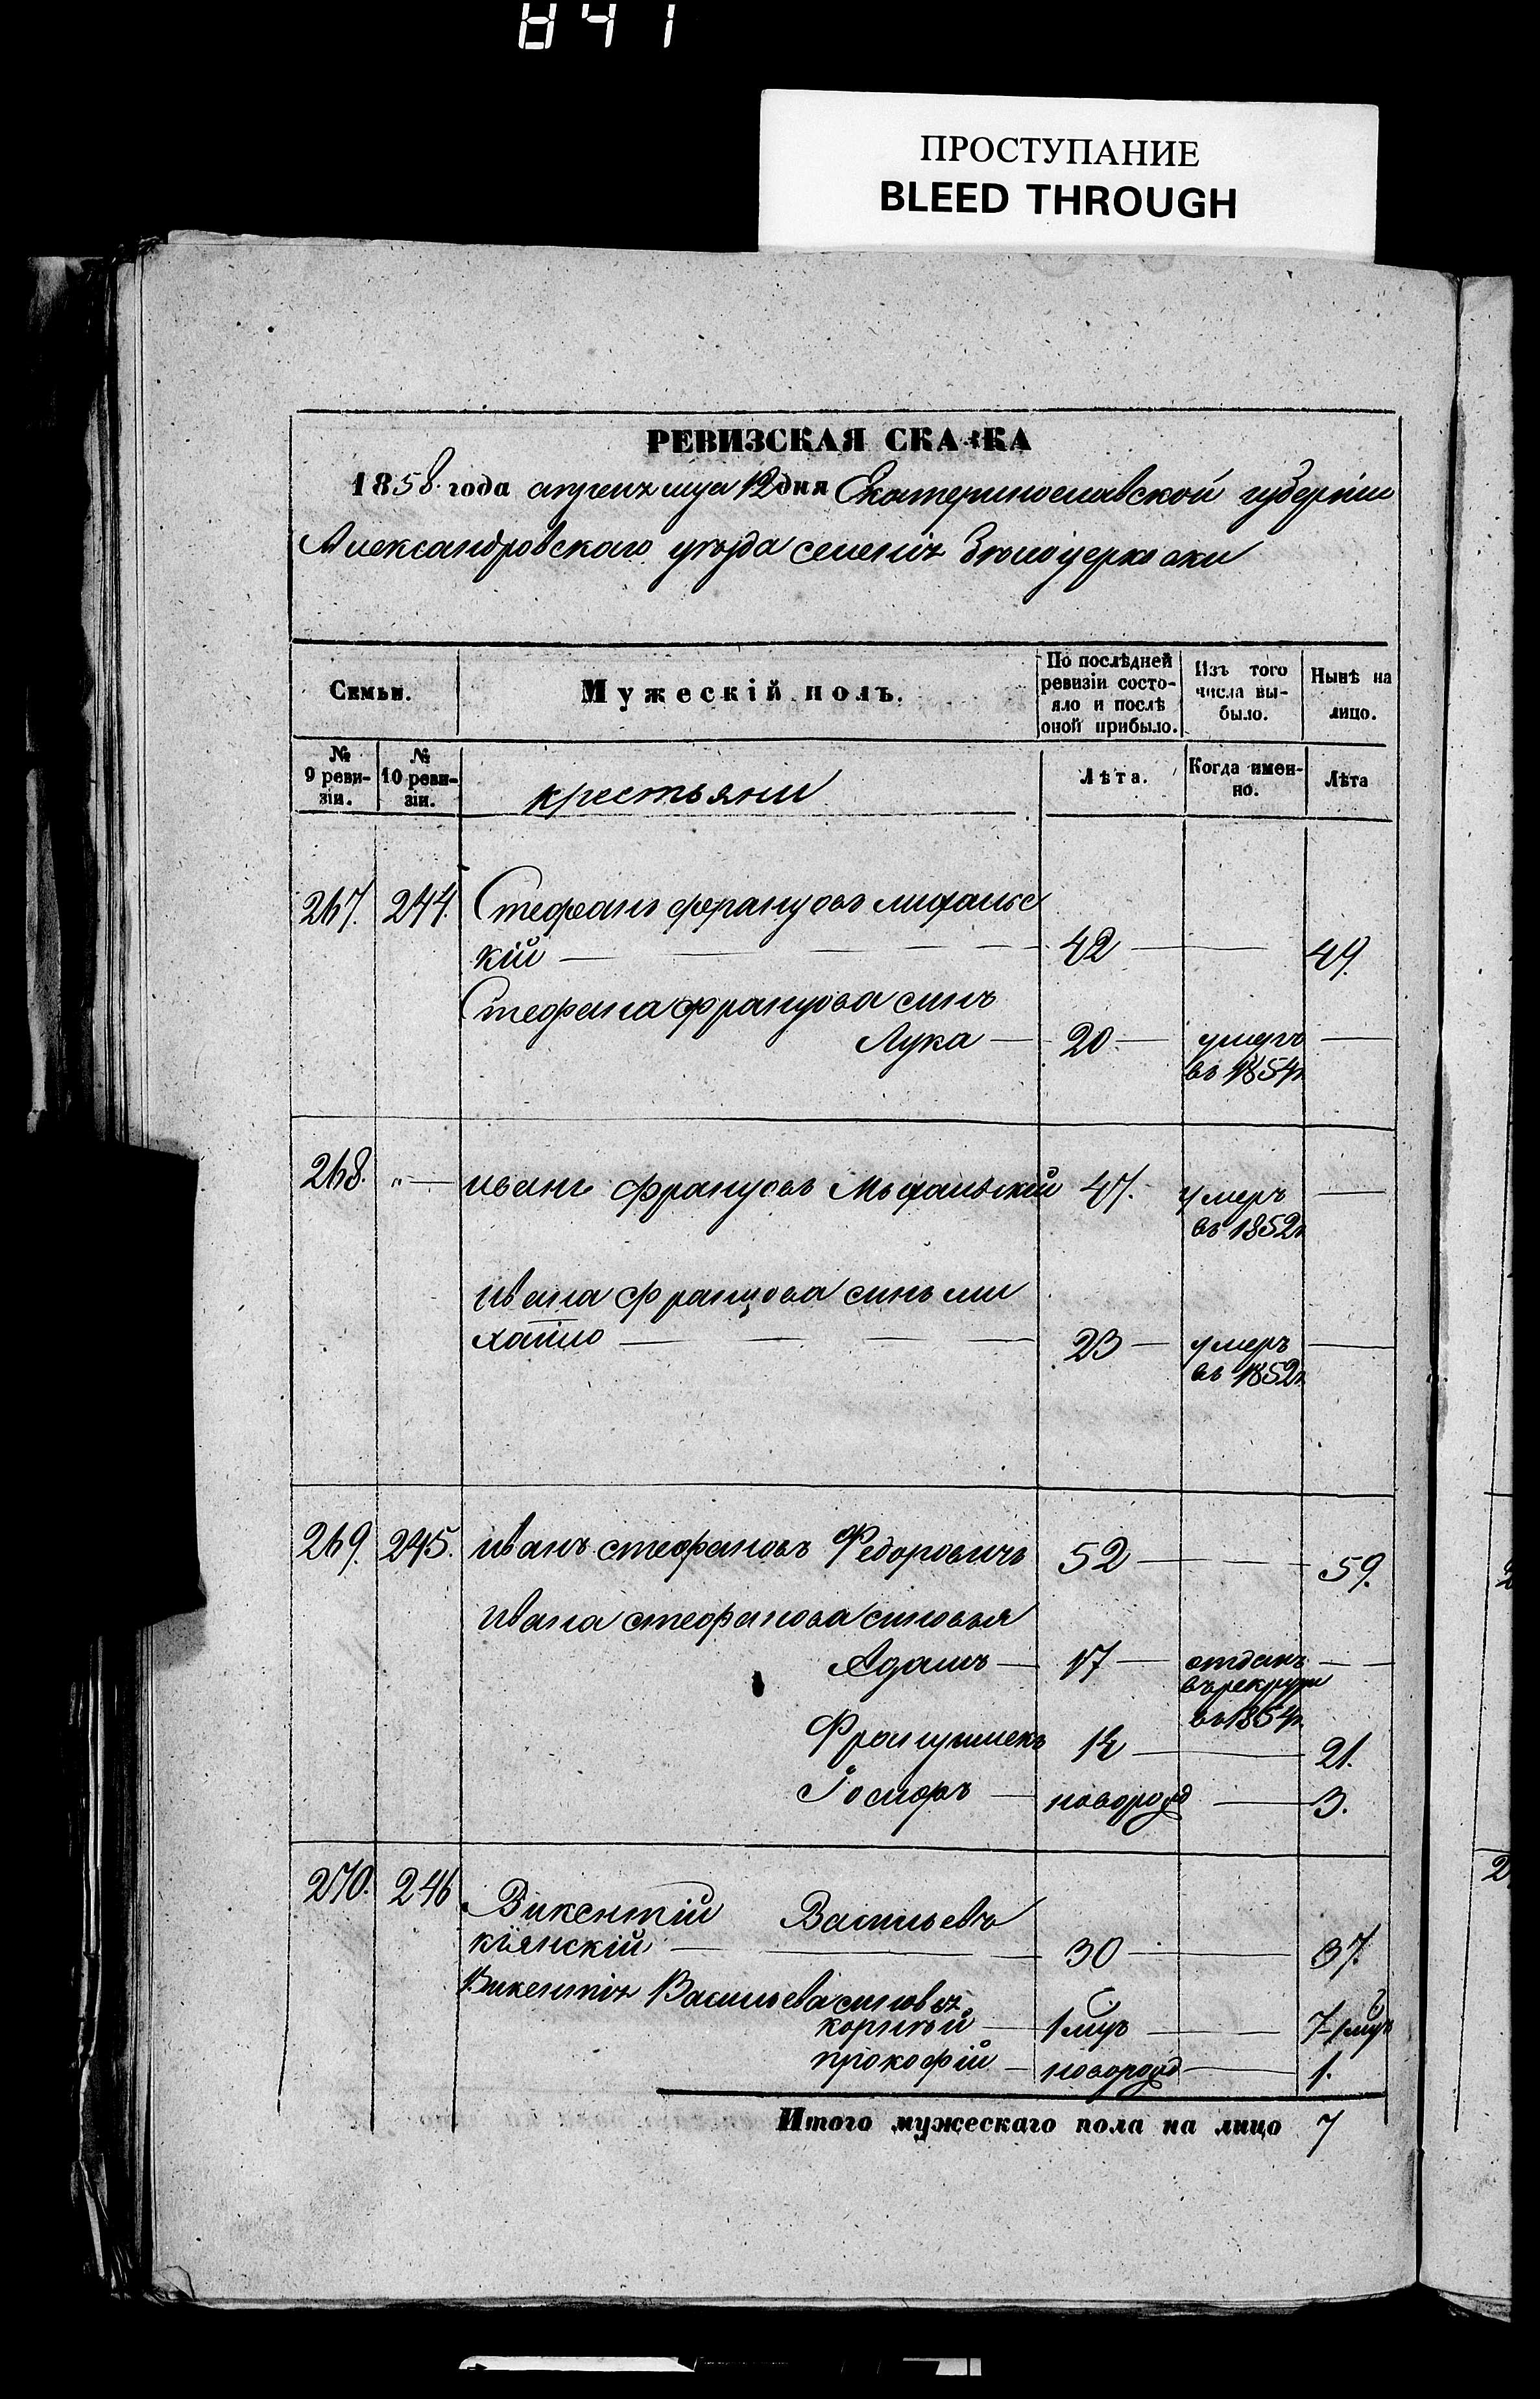 841
ПРОСТУПАНИЕ
BLEED THROUGH
РЕВИЗСКАЯ СКАЗКА
1858. года апреля мца 12 дня Екатеринославской губерніи
Александровского уезда селенія
Семьи. Мужескій полъ. По послѣдней ревизіи состояло и послѣ оной прибыло. Изъ того числа выбыло. Нынѣ на лицо.
№ 9 ревизіи. № 10 ревизіи. крестьяни Лѣта. Когда именно. Лѣта
267. 244. Стефанъ францовъ михальс
кій 42 49.
Стефана францова синъ
Лука 20 умеръ
въ 1854г
268. " иванъ францовъ Михальскій 47. умеръ
въ 1852г
ивана францова синъ ми
хайло 23 умеръ
въ 1852г
269. 245. иванъ стефановъ Федоровичъ 52 59.
ивана стефанова синовья
Адамъ 17 отданъ
въ рекруты
въ 1854г
Францишекъ 14 21.
Іосифъ новорожд 3.
270. 246 Викентій Васильевъ
кіянскій 30 37.
Викентія Васильева синовья
корнѣй 1 мцъ 7-1 мцъ
прокофій новорожд 1.
Итого мужескаго пола на лицо 7